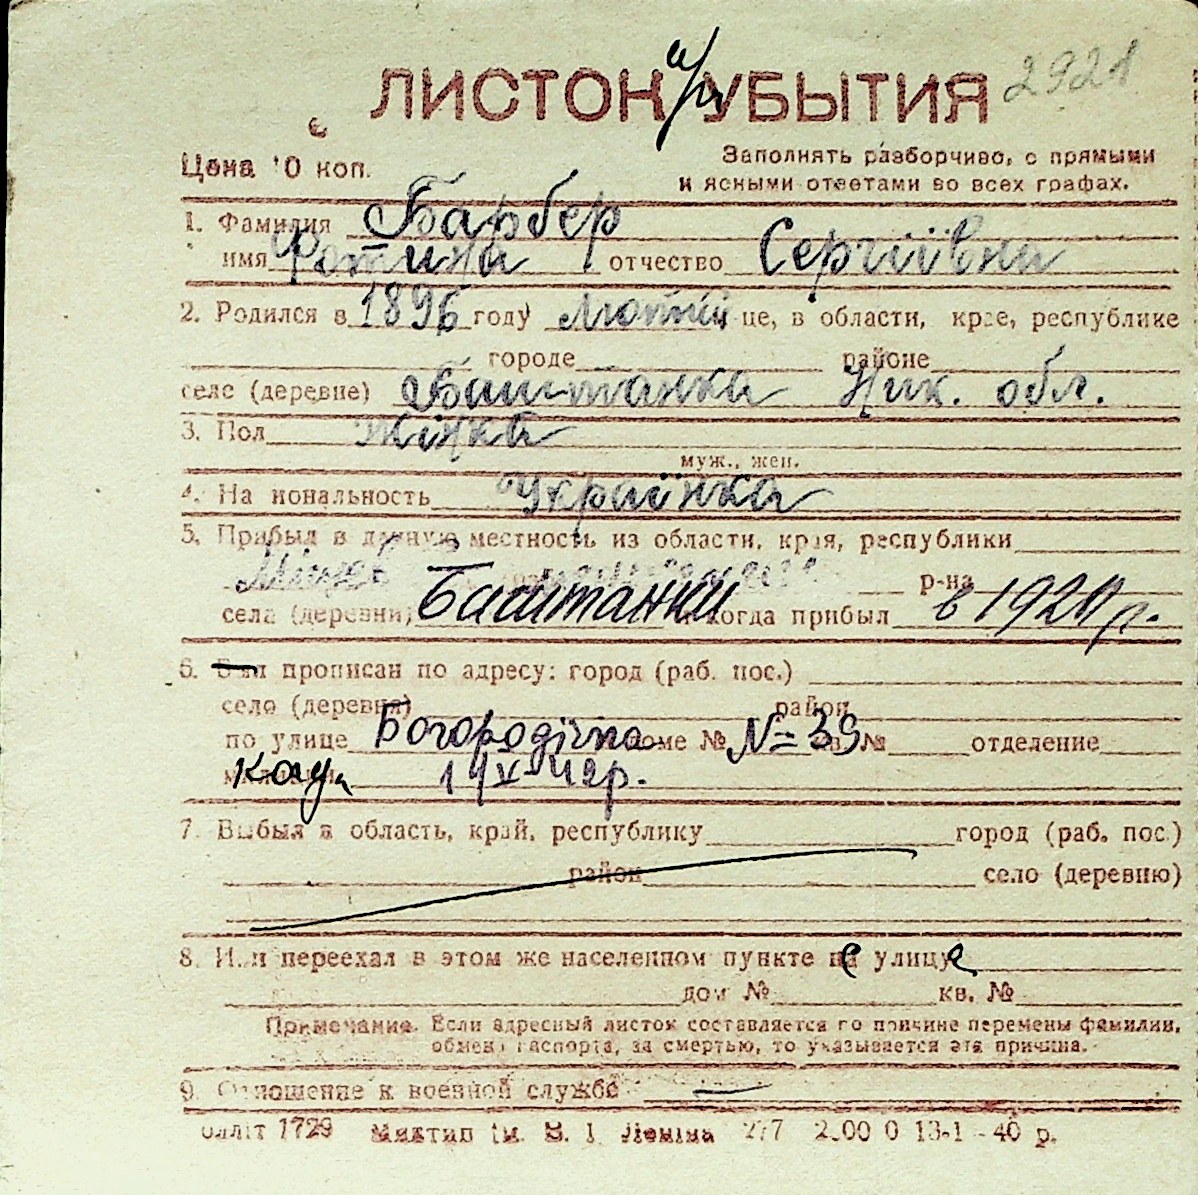 ЛИСТОК УБЫТИЯ 2921
Цена 10 коп.
Заполнять разборчиво, с прямыми
и ясными ответами во всех графах.
1. Фамилия Барбер
имя Фотина отчество Сергіївни
2. Родился в 1896 году це, в области, крае, республике
городе районе
селе (деревне) Баштанка Ник. обл.
3. Пол жінка
муж., жен.
4. Национальность Українка
5. Прибыл в данную местность из области, края, республики
р-на
села (деревни) Баштанки когда прибыл в 1920 р.
6. Был прописан по адресу: город (раб. пос.)
село (деревня) район
по улице Богородічна доме № N=39 кв. № отделение
милиции 14 V-42р.
7. Выбыл в область, край, республику город (раб. пос.)
район село (деревню)
8. Или переехал в этом же населенном пункте на улицу
дом № кв. №
Примечание. Если адресный листок составляется по причине перемены фамилии,
обмена паспорта, за смертью, то указывается эта причина.
9. Отношение к военной службе —
Оппіт 1729 Миктип ім. В. І. Леніна 277 2.00 0 13-1-40 р.